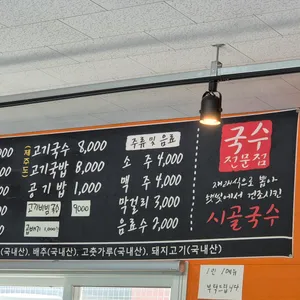 제주도
고기국수 8,000
고기국밥 8,000
공기밥 1,000
고기비빔국수 9000
곱배기 1,000
주류 및 음료
소주 4,000
맥주 4,000
막걸리 3,000
음료수 2,000
국수
전문점
재래식으로 뽑아
햇빛에서 건조시킨
시골국수
(국내산), 배추(국내산), 고춧가루(국내산), 돼지고기(국내산)
1인 1메뉴
부탁드립니다